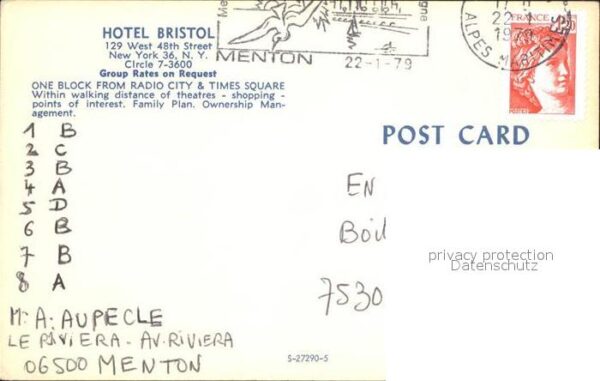 HOTEL BRISTOL
129 West 48th Street
New York 36, N. Y.
CIrcle 7-3600
Group Rates on Request
ONE BLOCK FROM RADIO CITY & TIMES SQUARE
Within walking distance of theatres - shopping -
points of interest. Family Plan. Ownership Man-
agement.
MENTON
22-1-79
ALPES MARITIMES
FRANCE
POST CARD
1 B
2 C
3 B
4 A
5 D
6 B
7 B
8 A
EN
7530
privacy protection
Datenschutz
Mr A. AUPECLE
LE RIVIERA - AV. RIVIERA
06500 MENTON
S-27290-5